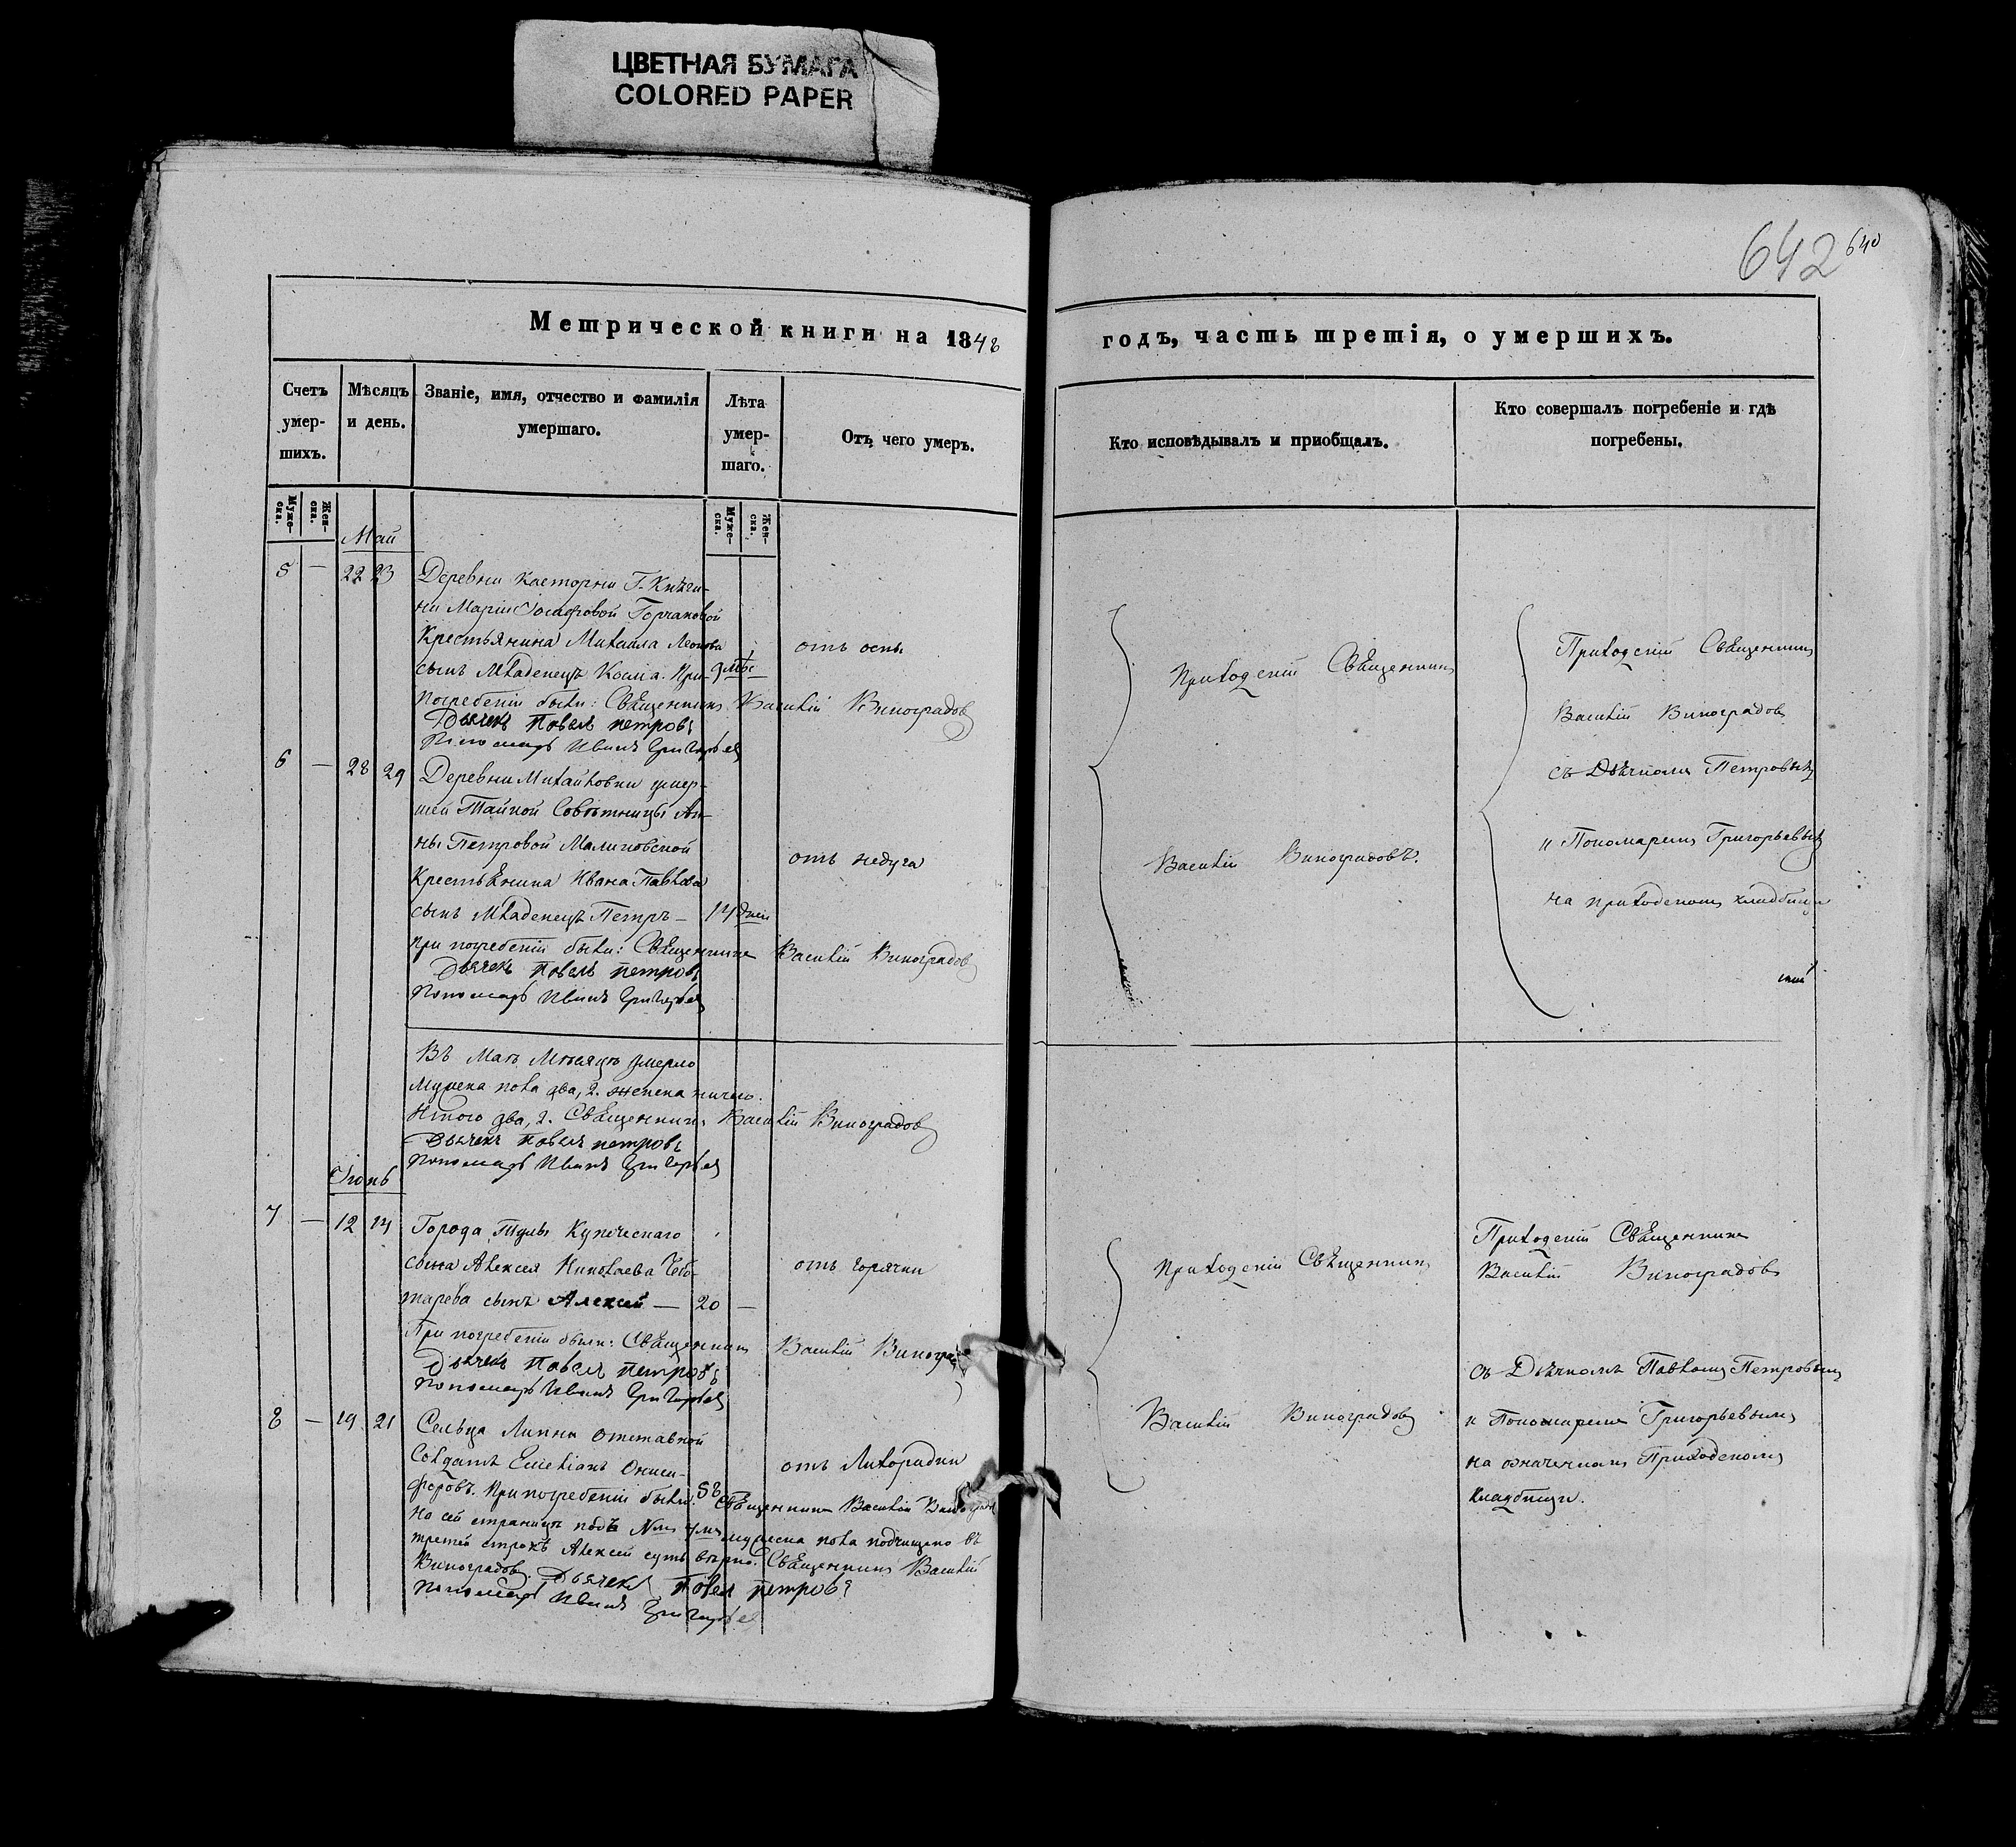 ЦВЕТНАЯ БУМАГА
COLORED PAPER
642 640
Метрической книги на 1848
годъ, часть третія, о умершихъ.
Счетъ умер- шихъ.
Мѣсяцъ и день.
Званіе, имя, отчество и фамилія умершаго.
Лѣта умер- шаго.
Отъ чего умеръ.
Кто исповѣдывалъ и приобщалъ.
Кто совершалъ погребеніе и гдѣ погребены.
Муже- ска.
Жен- ска.
Муже- ска.
Жен- ска.
Май
5 — 22 23 Деревни Касторни Г. Княги-
ни Маріи Горчаковой
Крестьянина Михаила
отъ оспы
сынъ Младенецъ Косма. При
погребеніи были: Священникъ Василій Виноградовъ
Дьячекъ Павелъ петровъ
Пономарь Иванъ Григорьев
6 — 28 29 Деревни Михайловки умер-
шей Тайной Совѣтницы Ан-
ны Петровой Малиновской
отъ недуга
Крестьянина Ивана Павлова
сынъ Младенецъ Петръ — 14 дней
При погребеніи были: Священникъ Василій Виноградовъ
Дьячекъ Павелъ петровъ
Пономарь Иванъ Григорьев
Въ Маѣ Мѣсяцѣ умерло
Мужеска пола два, 2. женска ничего.
Итого два, 2. Священникъ Василій Виноградовъ
Дьячекъ Павелъ петровъ
Пономарь Иванъ Григорьев
Іюнь
7 — 12 14 Города Тулы Купеческаго
сына Алексея Николаева Чебо-
отъ горячки
тарева сынъ Алексей — 20 —
При погребеніи были: Священникъ Василій Виноград
Дьячекъ Павелъ петровъ
Пономарь Иванъ Григорьев
8 — 19 21 Сельца Липки отставной
Солдатъ Емеліанъ Ониси-
отъ Лихорадки
форовъ. При погребеніи были: Священникъ Василій Виноградовъ
На сей страницѣ подъ № 7мъ мужеска пола подчищено въ
третей строкѣ Алексей суть вѣрно. Священникъ Василій
Виноградовъ. Дьячекъ Павел петровъ
Пономарь Иванъ Григорьев
Приходскій Священникъ
Василій Виноградовъ.
Приходскій Священникъ
Василій Виноградовъ
съ Дьячкомъ Петровымъ
и Пономаремъ Григорьевымъ
на приходскомъ кладбищи
Приходскій Священникъ
Василій Виноградовъ
Приходскій Священникъ
Василій Виноградовъ
съ Дьячкомъ Павломъ Петровымъ
и Пономаремъ Григорьевымъ
на означенномъ Приходскомъ
кладбищи.